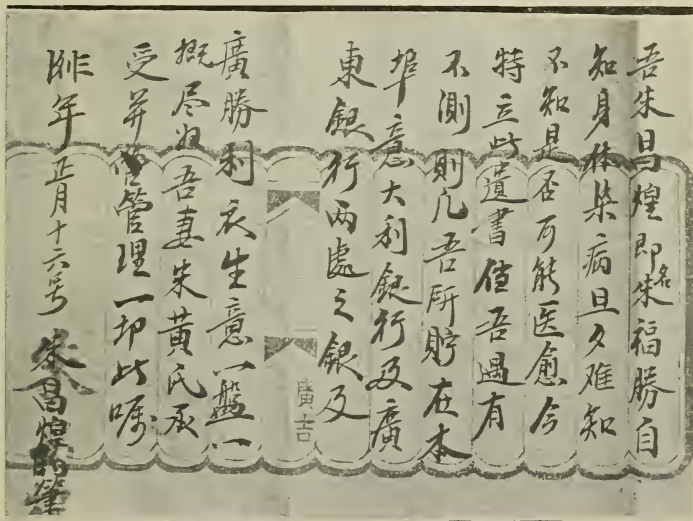 吾朱昌煌即名朱福勝自
知身体染病旦夕难知
不知是否可能医愈今
特立此遺書倘吾過有
不測則凡吾所貯在本
埠意大利銀行及廣
東銀行两處之銀及
廣勝利衣生意一盤一
概尽归吾妻朱黄氏承
受并管理一切此嘱
年正月十六号 朱昌煌的筆
廣吉